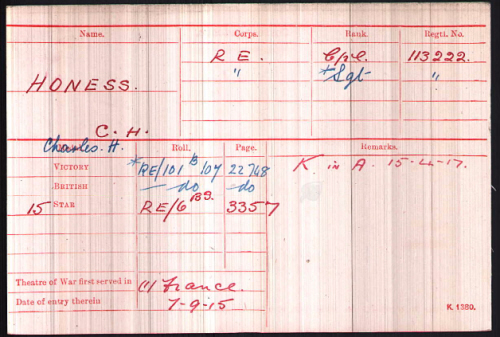 Name. Corps. Rank. Regtl. No.
R E. Cpl. 113222.
HONESS. " *Sgt "
C. H.
Charles. H. Roll. Page. Remarks.
VICTORY *RE/101 B 107 22768 K. in A. 15-4-17.
BRITISH — do — do
15 STAR RE/6 B9. 3357
Theatre of War first served in (1) France.
Date of entry therein 7-9-15
K 1380.